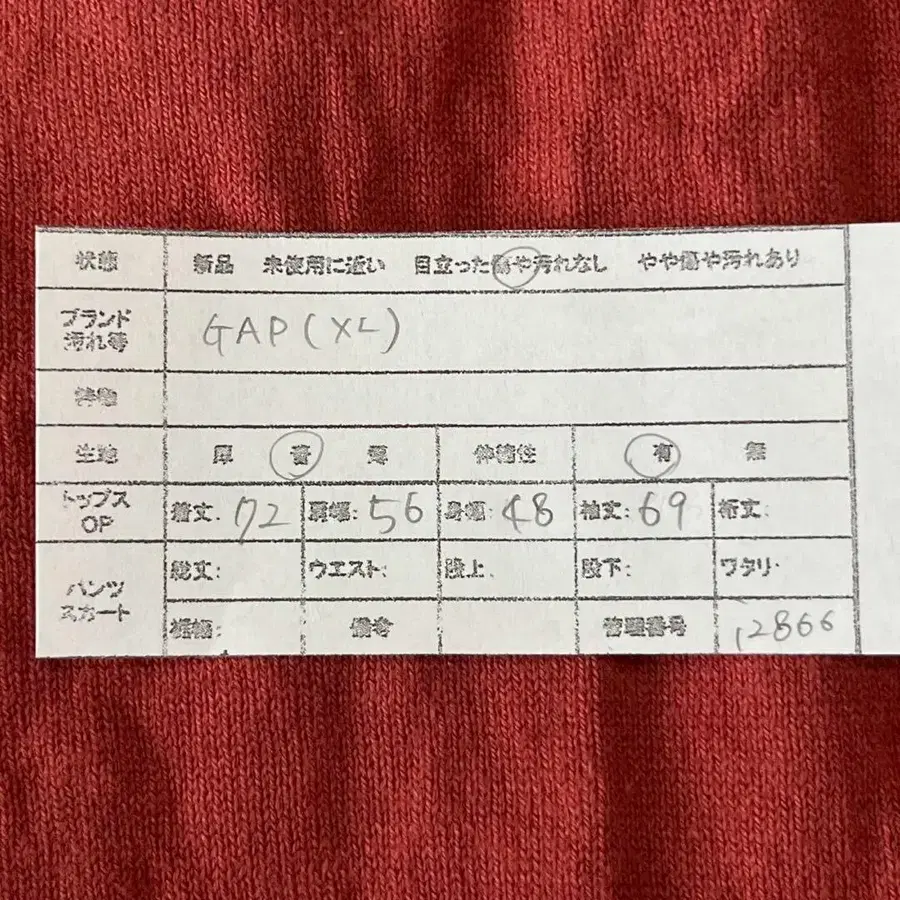 状態 新品 未使用に近い 目立った傷や汚れなし やや傷や汚れあり
ブランド
汚れ等 GAP(XL)
特徴
生地 厚 普 薄 伸縮性 有 無
トップス
OP 着丈: 72 肩幅: 56 身幅: 48 袖丈: 69 裄丈:
パンツ
スカート 総丈: ウエスト: 股上. 股下: ワタリ・
裾幅: 備考 管理番号 12866